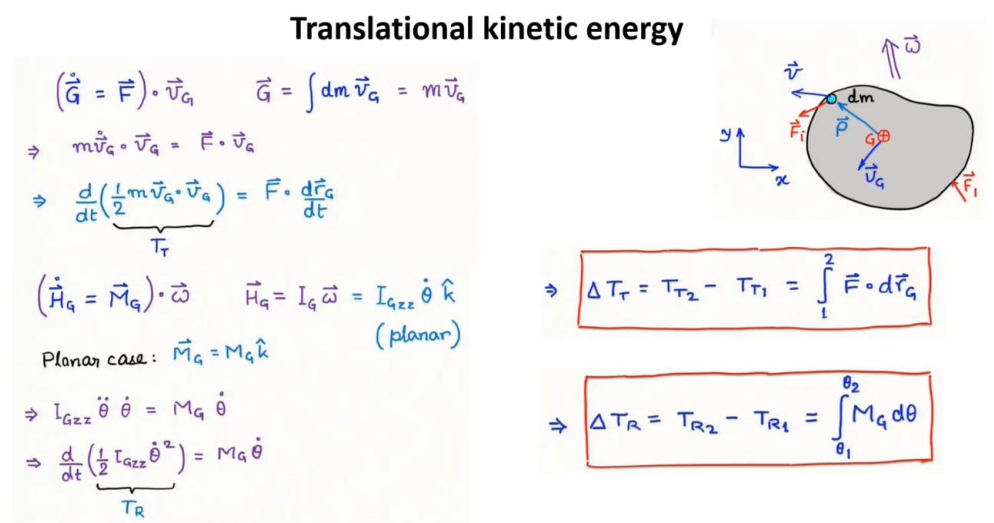 Translational kinetic energy
(G⃗̇ = F⃗)·v⃗_G    G⃗ = ∫dm v⃗_G = m v⃗_G
⇒ m v⃗̇_G · v⃗_G = F⃗ · v⃗_G
⇒ d/dt (1/2 m v⃗_G · v⃗_G) = F⃗ · dr⃗_G/dt
T_T
(H⃗̇_G = M⃗_G)·ω⃗    H⃗_G = I_G ω⃗ = I_Gzz θ̇ k̂
(planar)
Planar case: M⃗_G = M_G k̂
⇒ I_Gzz θ̈ θ̇ = M_G θ̇
⇒ d/dt (1/2 I_Gzz θ̇²) = M_G θ̇
T_R
ω⃗
v⃗
dm
F⃗_i
ρ⃗
G
y
x
v⃗_G
F⃗_1
⇒ ΔT_T = T_T2 − T_T1 = ∫₁² F⃗ · dr⃗_G
⇒ ΔT_R = T_R2 − T_R1 = ∫_θ₁^θ₂ M_G dθ